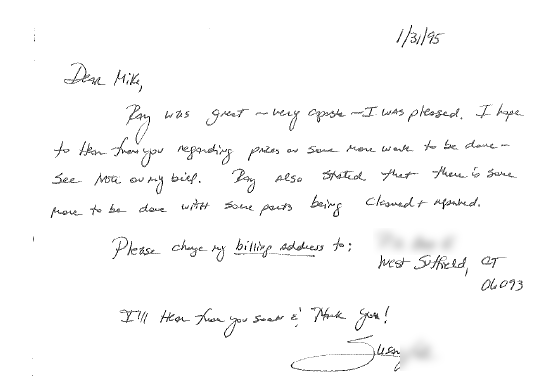 1/31/95
Dear Mike,
Ray was great – very capable – I was pleased. I hope
to Hear from you regarding prizes on some more work to be done –
See Note on my bill. Ray also stated that there is some
more to be done with some parts being Cleaned + repaired.
Please change my billing address to:
West Suffield, CT
06093
I'll Hear from you soon & Thank You!
Susan